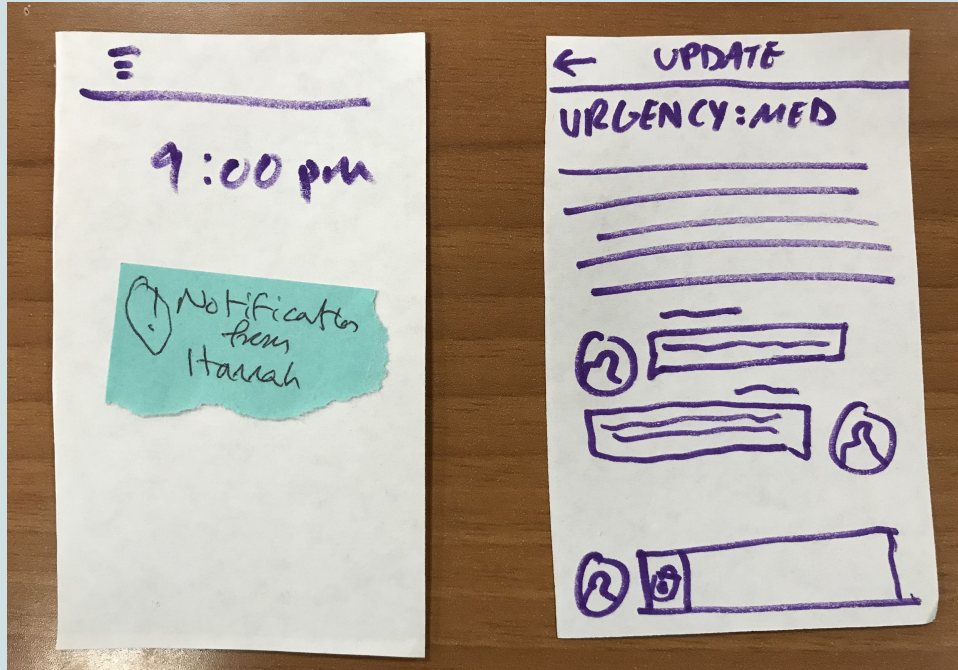 9:00 pm
! Notification
from
Hannah
← UPDATE
URGENCY: MED